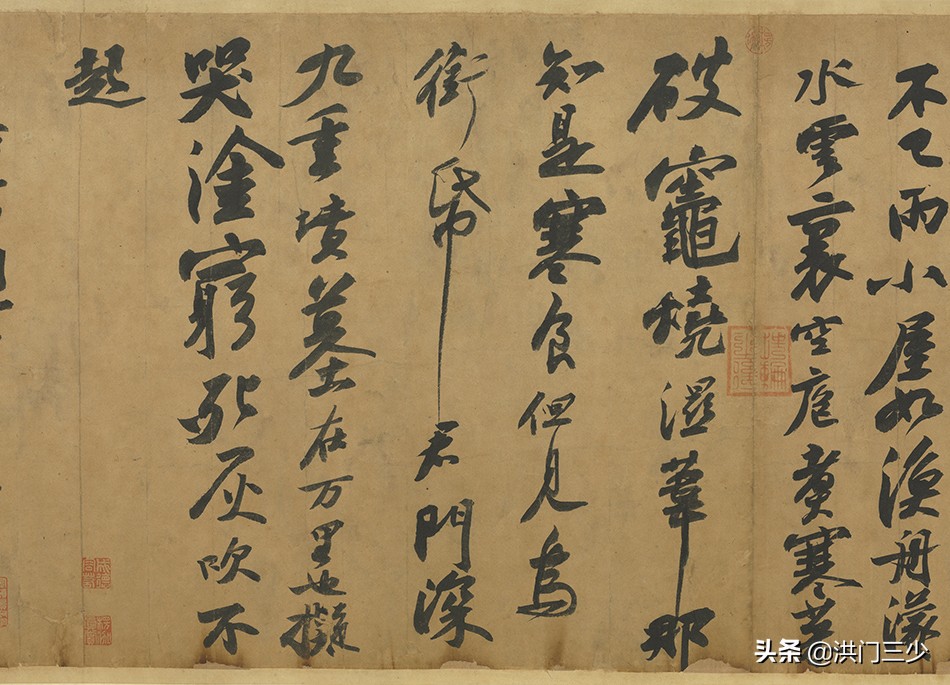 不已雨小屋如漁舟濛
水雲裏空庖煮寒菜
破竈燒濕葦那
知是寒食但見烏
銜帋君門深
九重墳墓在万里也擬
哭塗窮死灰吹不
起
头条 @洪门三少